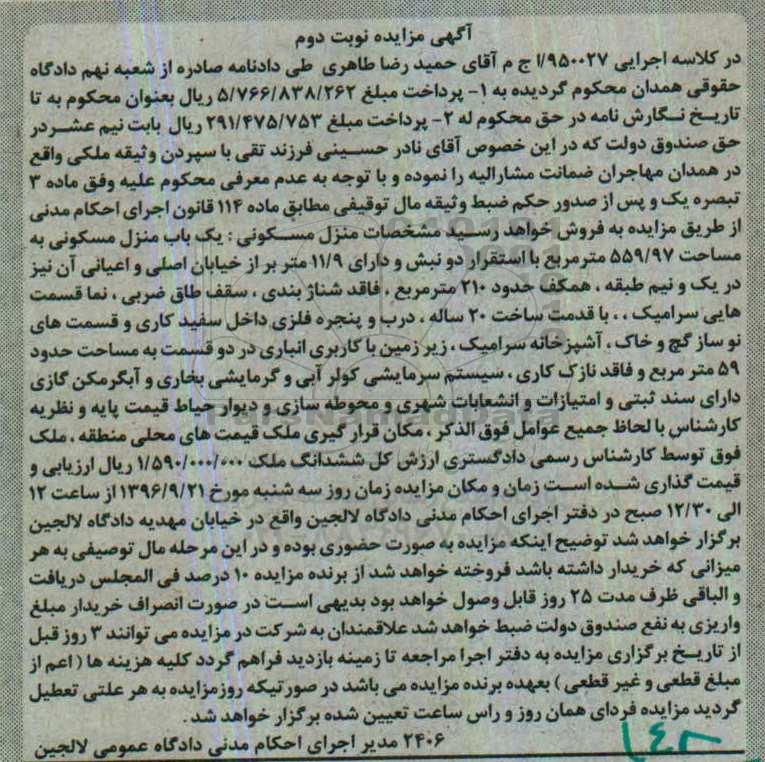 آگهی مزایده نوبت دوم
در کلاسه اجرایی ۹۵۰۰۲۷/ا ج م آقای حمید رضا طاهری طی دادنامه صادره از شعبه نهم دادگاه
حقوقی همدان محکوم گردیده به ۱- پرداخت مبلغ ۵/۷۶۶/۸۳۸/۲۶۲ ریال بعنوان محکوم به تا
تاریخ نگارش نامه در حق محکوم له ۲- پرداخت مبلغ ۲۹۱/۴۷۵/۷۵۳ ریال بابت نیم عشر در
حق صندوق دولت که در این خصوص آقای نادر حسینی فرزند تقی با سپردن وثیقه ملکی واقع
در همدان مهاجران ضمانت مشارالیه را نموده و با توجه به عدم معرفی محکوم علیه وفق ماده ۳
تبصره یک و پس از صدور حکم ضبط وثیقه مال توقیفی مطابق ماده ۱۱۴ قانون اجرای احکام مدنی
از طریق مزایده به فروش خواهد رسید مشخصات منزل مسکونی : یک باب منزل مسکونی به
مساحت ۵۵۹/۹۷ مترمربع با استقرار دو نبش و دارای ۱۱/۹ متر بر از خیابان اصلی و اعیانی آن نیز
در یک و نیم طبقه ، همکف حدود ۲۱۰ مترمربع ، فاقد شناژ بندی ، سقف طاق ضربی ، نما قسمت
هایی سرامیک ، ، با قدمت ساخت ۲۰ ساله ، درب و پنجره فلزی داخل سفید کاری و قسمت های
نو ساز گچ و خاک ، آشپزخانه سرامیک ، زیر زمین با کاربری انباری در دو قسمت به مساحت حدود
۵۹ متر مربع و فاقد نازک کاری ، سیستم سرمایشی کولر آبی و گرمایشی بخاری و آبگرمکن گازی
دارای سند ثبتی و امتیازات و انشعابات شهری و محوطه سازی و دیوار حیاط قیمت پایه و نظریه
کارشناس با لحاظ جمیع عوامل فوق الذکر ، مکان قرار گیری ملک قیمت های محلی منطقه ، ملک
فوق توسط کارشناس رسمی دادگستری ارزش کل ششدانگ ملک ۱/۵۹۰/۰۰۰/۰۰۰ ریال ارزیابی و
قیمت گذاری شده است زمان و مکان مزایده زمان روز سه شنبه مورخ ۱۳۹۶/۹/۲۱ از ساعت ۱۲
الی ۱۲/۳۰ صبح در دفتر اجرای احکام مدنی دادگاه لالجین واقع در خیابان مهدیه دادگاه لالجین
برگزار خواهد شد توضیح اینکه مزایده به صورت حضوری بوده و در این مرحله مال توصیفی به هر
میزانی که خریدار داشته باشد فروخته خواهد شد از برنده مزایده ۱۰ درصد فی المجلس دریافت
و الباقی ظرف مدت ۲۵ روز قابل وصول خواهد بود بدیهی است در صورت انصراف خریدار مبلغ
واریزی به نفع صندوق دولت ضبط خواهد شد علاقمندان به شرکت در مزایده می توانند ۳ روز قبل
از تاریخ برگزاری مزایده به دفتر اجرا مراجعه تا زمینه بازدید فراهم گردد کلیه هزینه ها ( اعم از
مبلغ قطعی و غیر قطعی ) بعهده برنده مزایده می باشد در صورتیکه روز مزایده به هر علتی تعطیل
گردید مزایده فردای همان روز و راس ساعت تعیین شده برگزار خواهد شد .
۲۴۰۶ مدیر اجرای احکام مدنی دادگاه عمومی لالجین
ParsNamadData